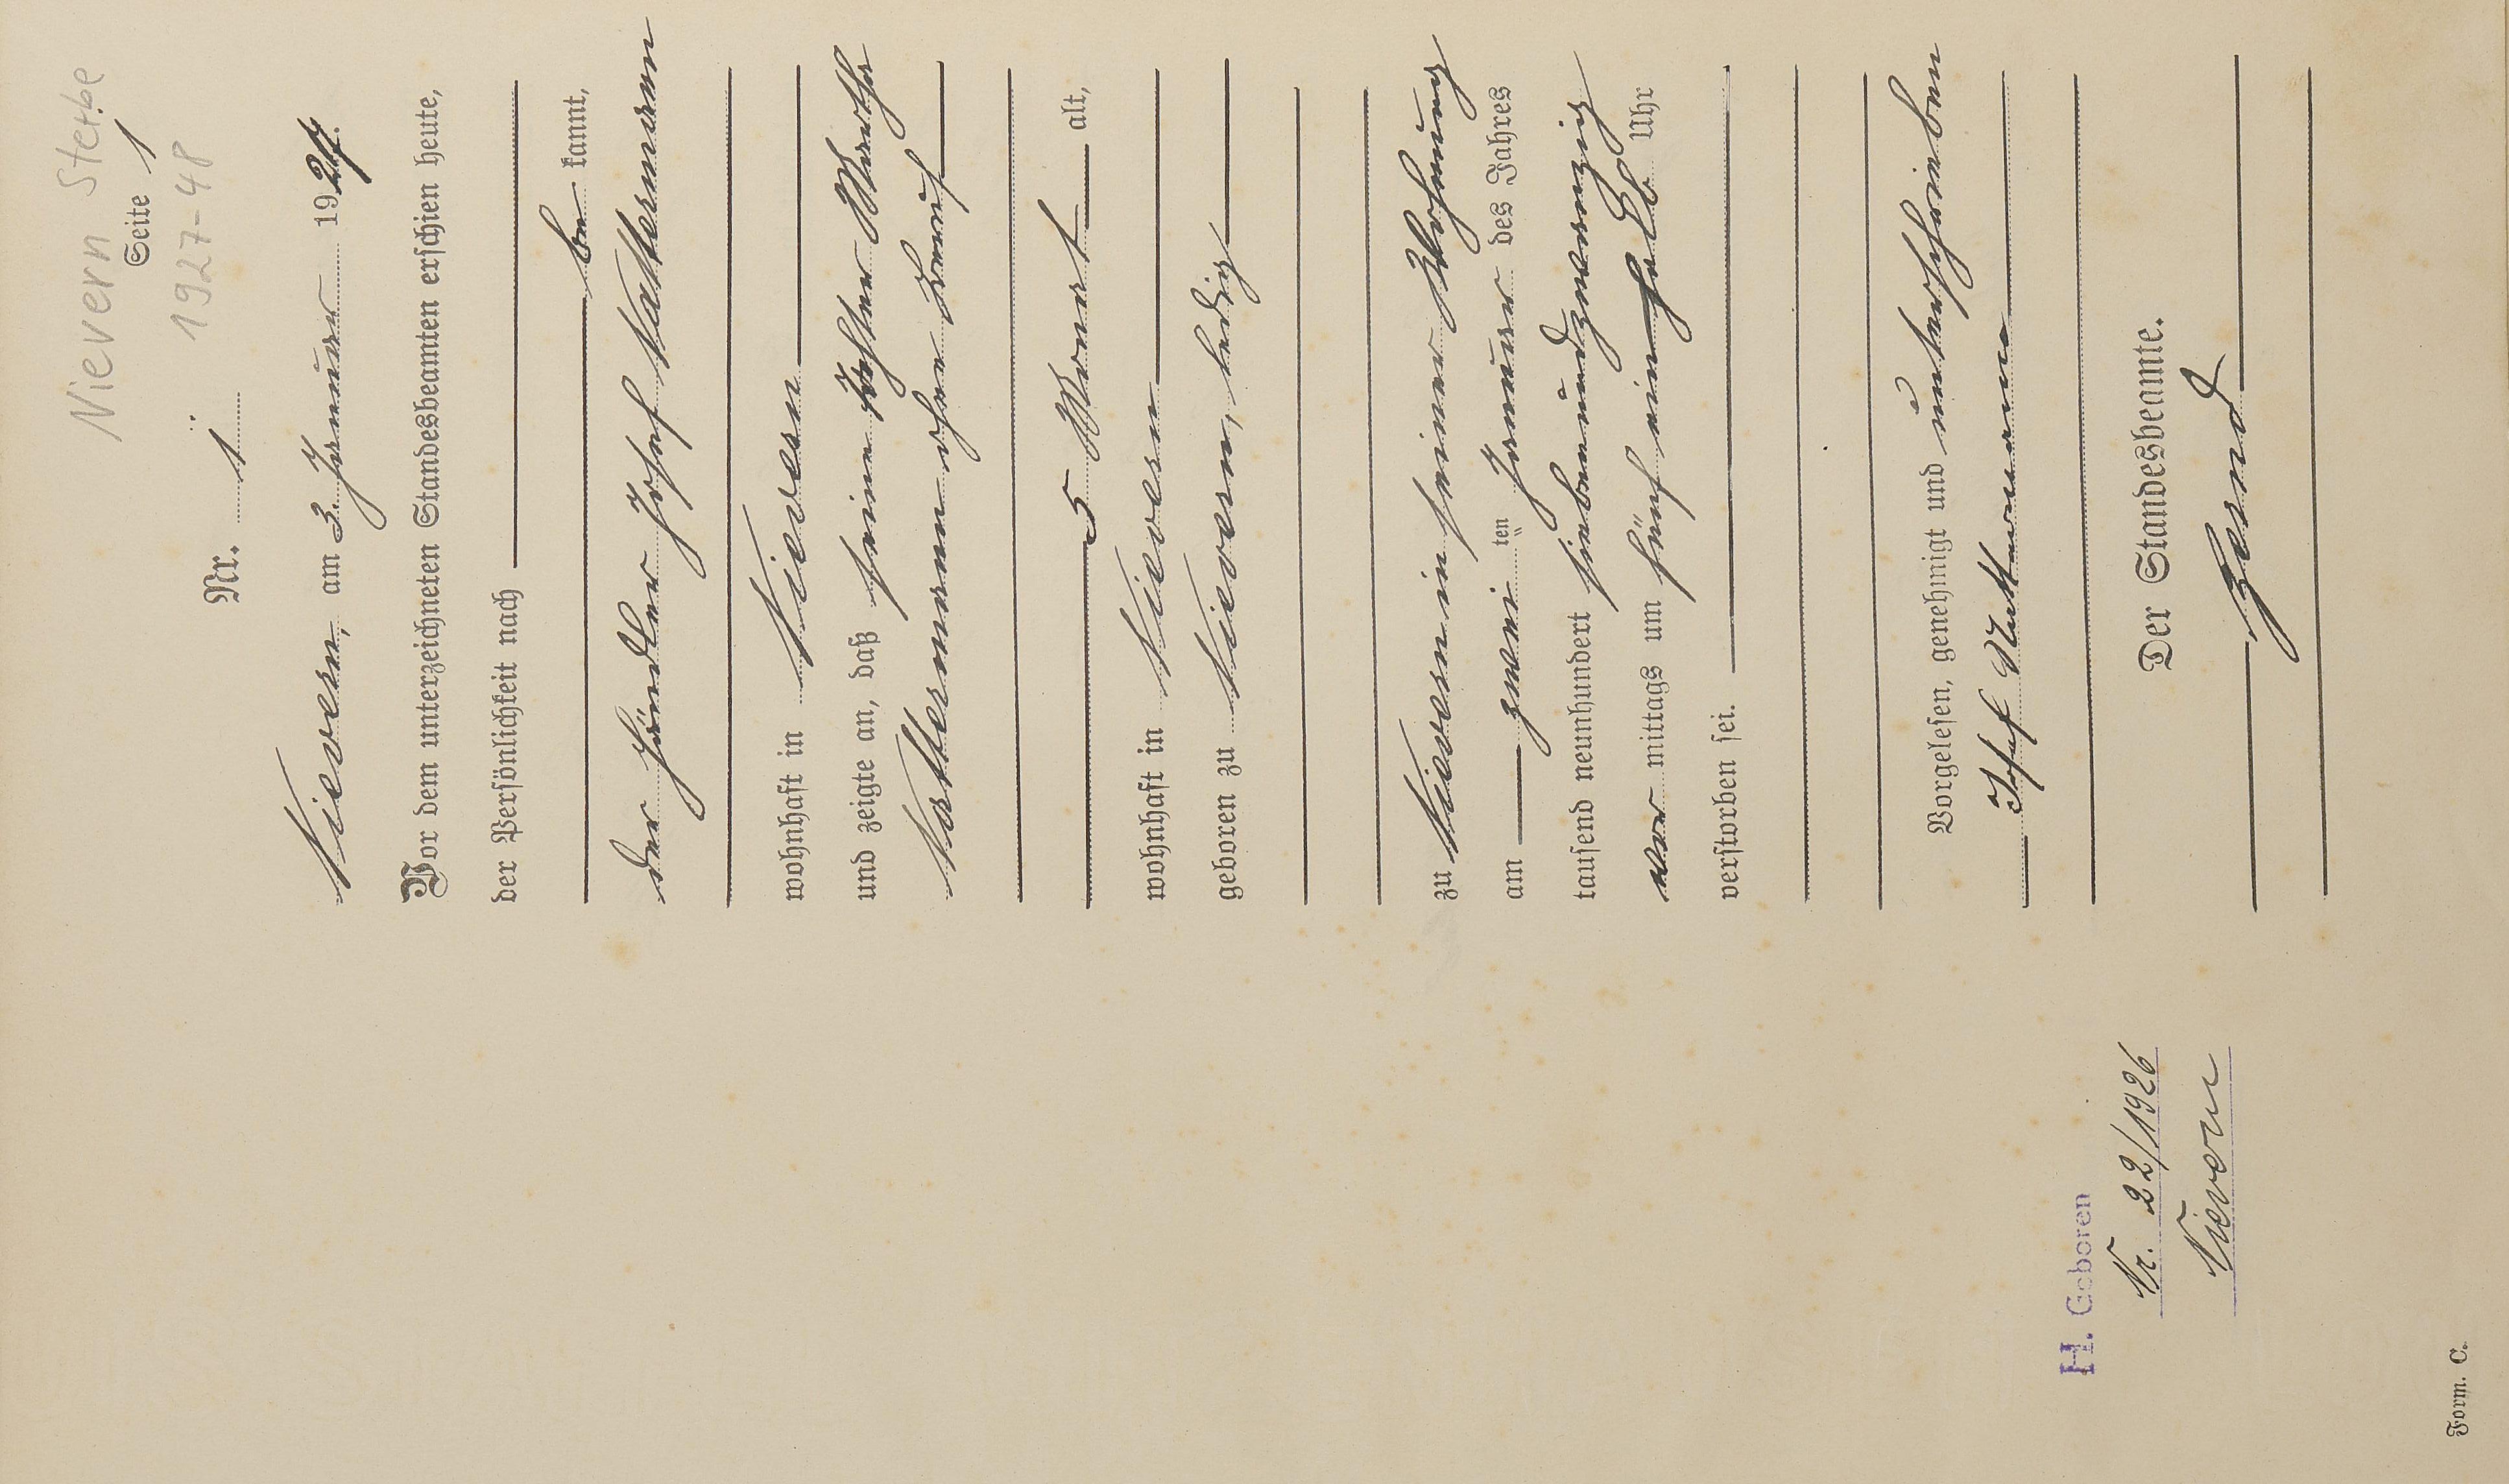 Nievern Sterbe
Seite 1
1927-48
Nr. 1
Nievern, am 3. Januar 1927.
Vor dem unterzeichneten Standesbeamten erschien heute,
der Persönlichkeit nach
be kannt,
der Händler Josef Nattermann
wohnhaft in Nievern
und zeigte an, daß seine Tochter Martha
Nattermann ohne Beruf
5 Monat alt,
wohnhaft in Nievern
geboren zu Nievern, ledig
zu Nievern in seiner Wohnung
am zwei ten Januar des Jahres
tausend neunhundert siebenundzwanzig
vor mittags um fünf ein halb Uhr
verstorben sei.
Vorgelesen, genehmigt und unterschrieben
Josef Nattermann
Der Standesbeamte.
H. Geboren
Nr. 22/1926
Nievern
Form. C.